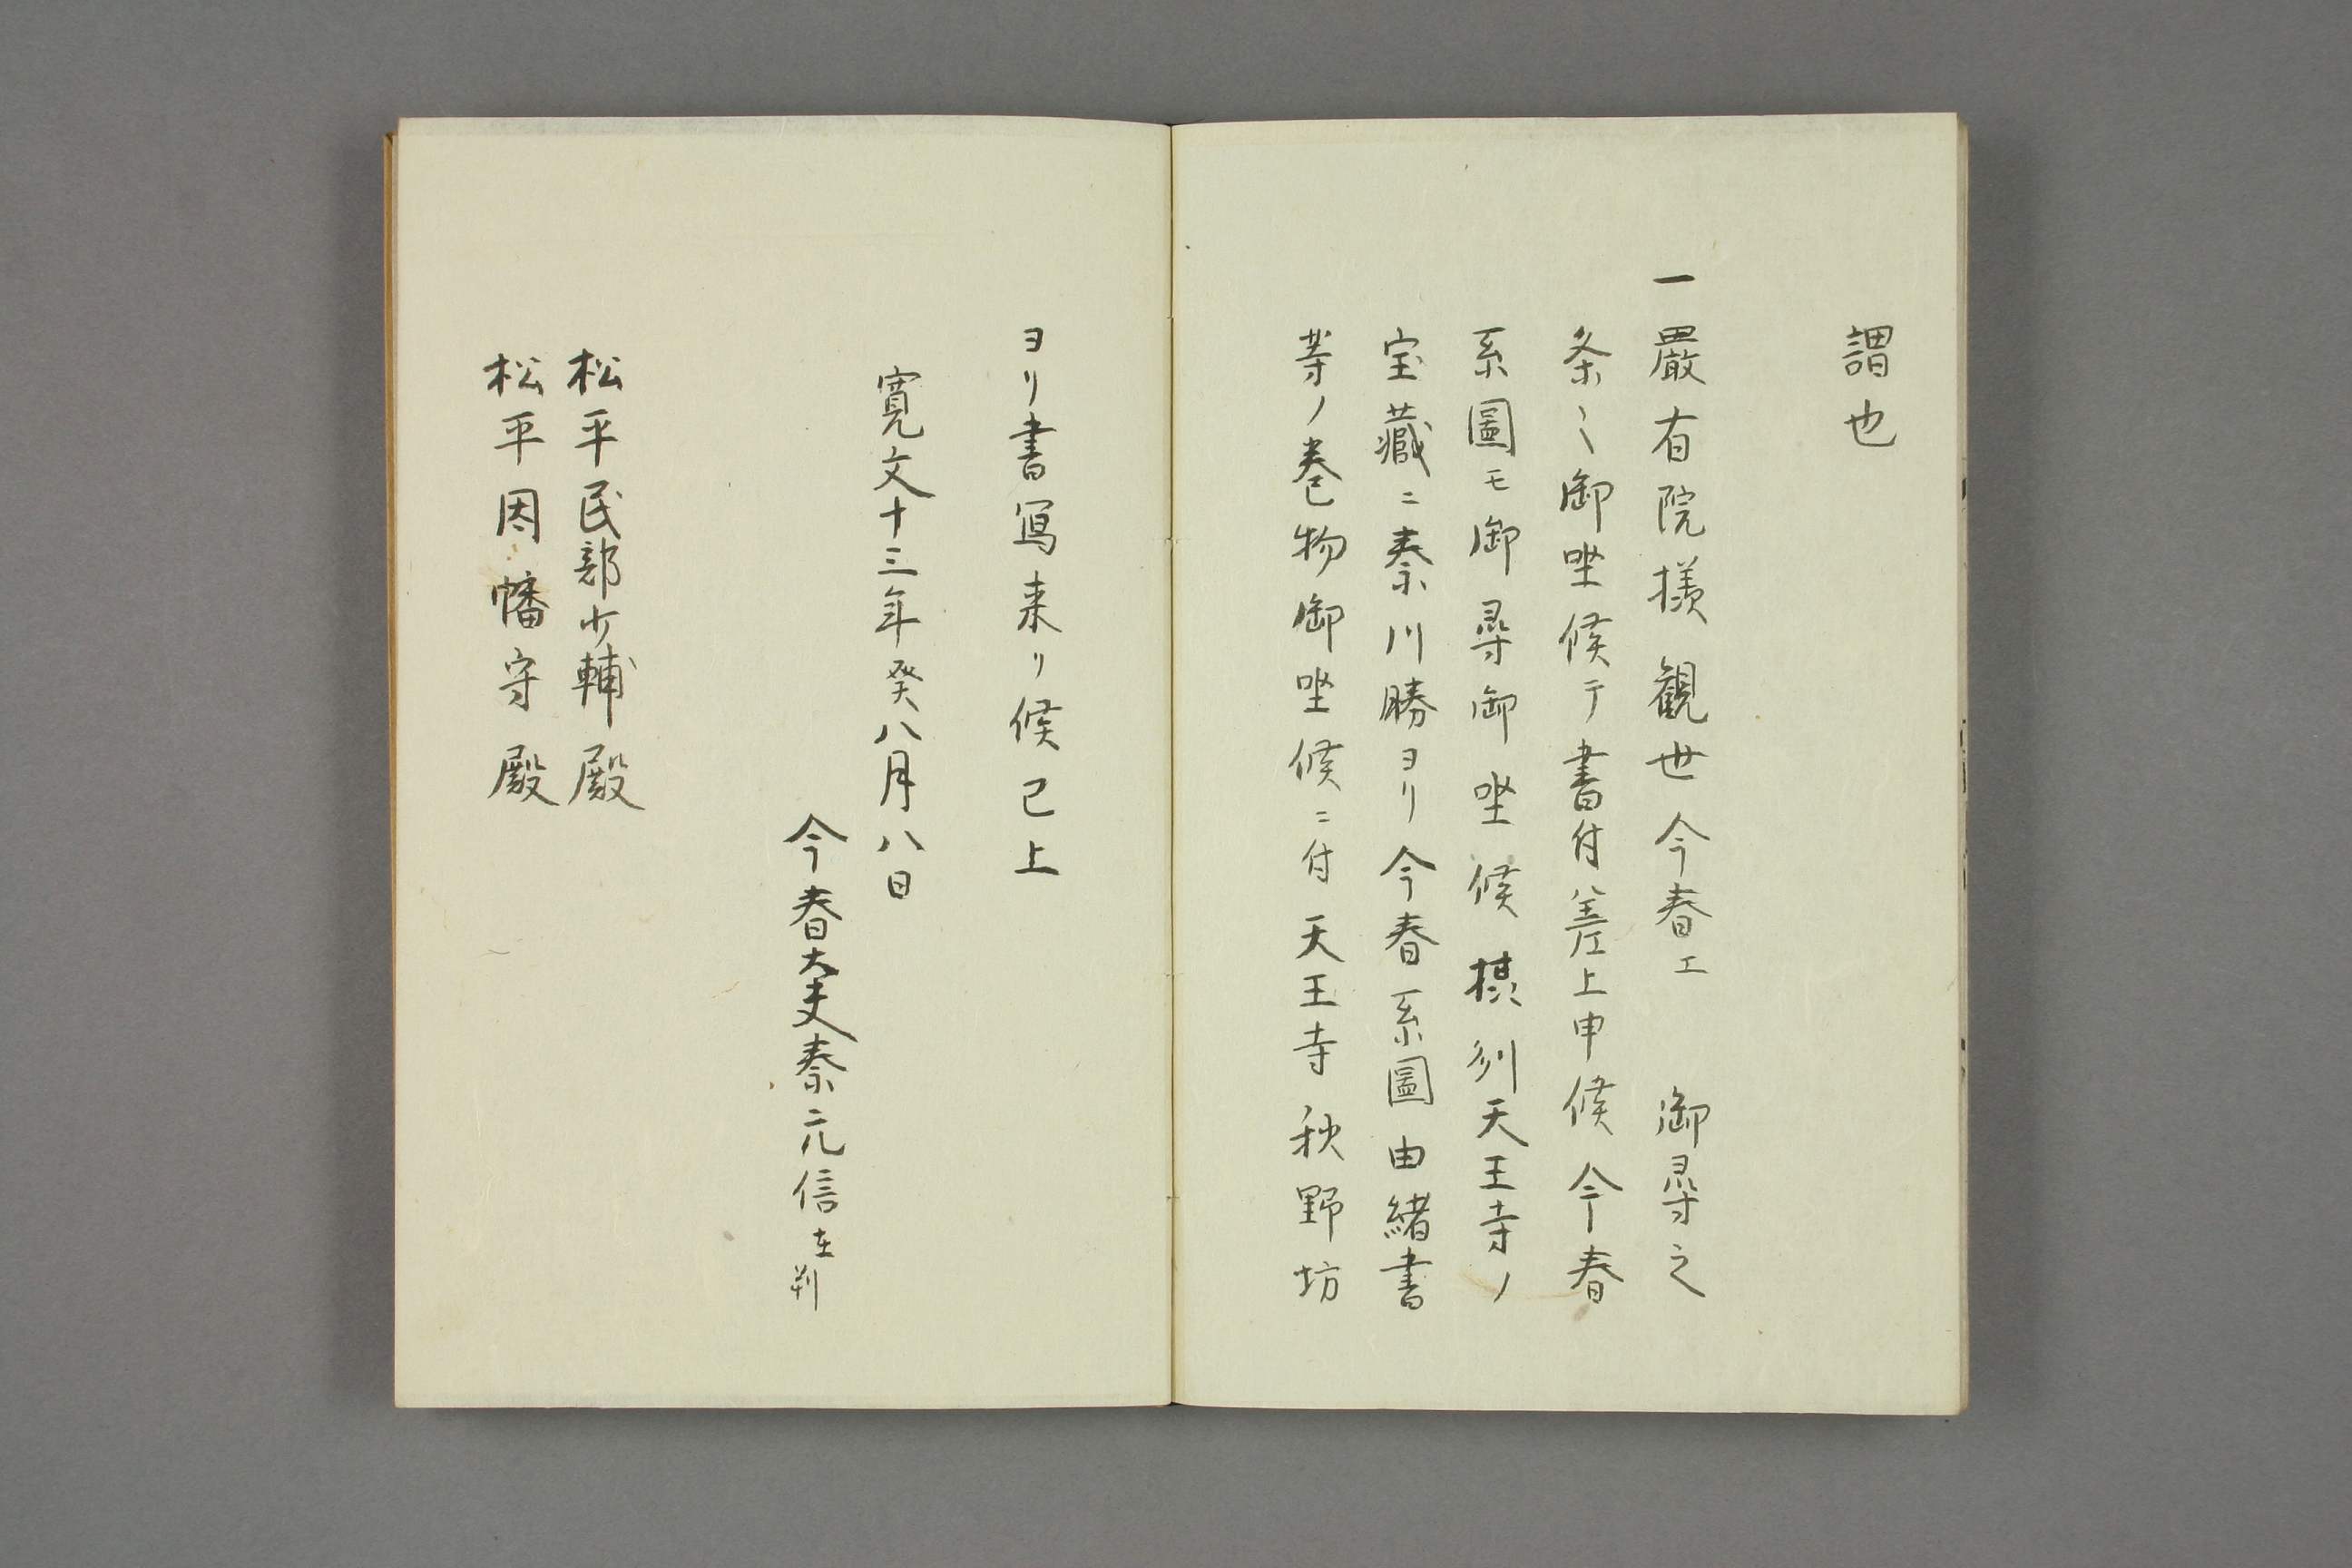 謂也
一巖有院様観世今春エ　御尋之
条〻御坐候テ書付差上申候今春
系圖モ御尋御坐候摂州天王寺ノ
宝蔵ニ秦川勝ヨリ今春系圖由緒書
等ノ巻物御坐候ニ付天王寺秋野坊
ヨリ書写来リ候已上
寛文十三年癸八月八日
今春大夫秦元信在判
松平民部少輔殿
松平因幡守殿